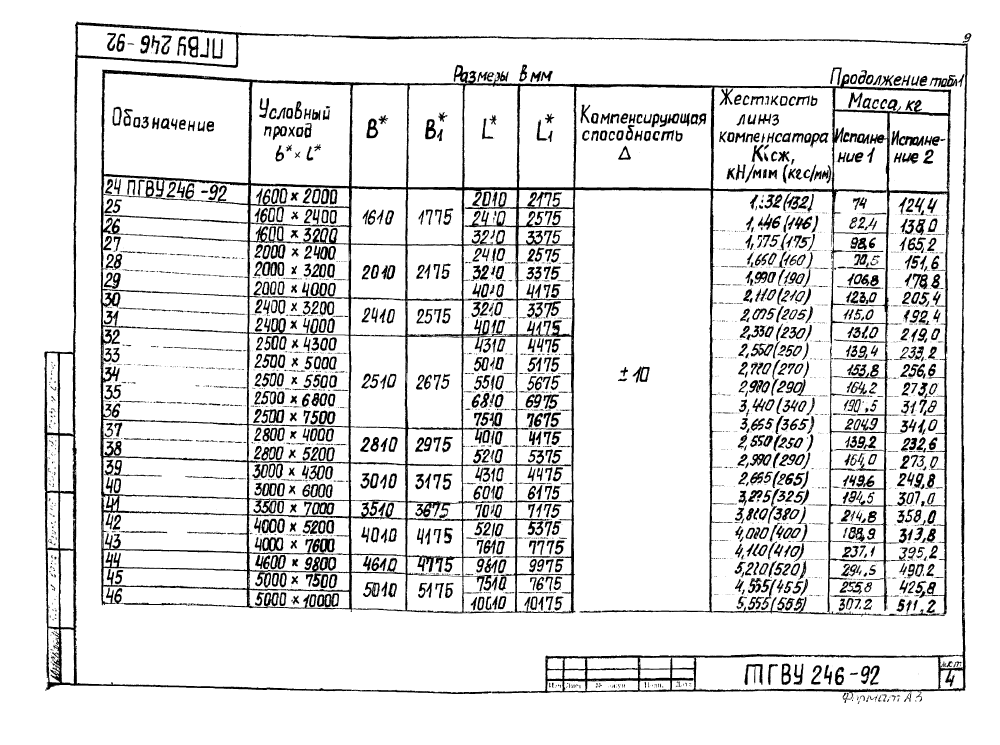 ПГВУ 246-92
9
Размеры в мм
Продолжение табл1
Обозначение
Условный проход b* × l*
B*
B₁*
L*
L₁*
Компенсирующая способность Δ
Жесткость линз компенсатора Kсж, кН/мм (кгс/мм)
Масса, кг
Исполнение 1
Исполнение 2
24 ПГВУ 246-92 1600 × 2000 1610 1775 2010 2175 ±10 1,132(132) 74 124,4
25 1600 × 2400 2410 2575 1,446(146) 82,4 138,0
26 1600 × 3200 3210 3375 1,775(175) 98,6 165,2
27 2000 × 2400 2010 2175 2410 2575 1,660(160) 151,6
28 2000 × 3200 3210 3375 1,990(190) 106,8 178,8
29 2000 × 4000 4010 4175 2,110(210) 123,0 205,4
30 2400 × 3200 2410 2575 3210 3375 2,075(205) 115,0 192,4
31 2400 × 4000 4010 4175 2,330(230) 131,0 219,0
32 2500 × 4300 2510 2675 4310 4475 2,550(250) 139,4 233,2
33 2500 × 5000 5010 5175 2,770(270) 153,8 256,6
34 2500 × 5500 5510 5675 2,990(290) 164,2 273,0
35 2500 × 6800 6810 6975 3,440(340) 190,5 317,8
36 2500 × 7500 7510 7675 3,665(365) 204,9 341,0
37 2800 × 4000 2810 2975 4010 4175 2,550(250) 139,2 232,6
38 2800 × 5200 5210 5375 2,990(290) 164,0 273,0
39 3000 × 4300 3010 3175 4310 4475 2,665(265) 149,6 249,8
40 3000 × 6000 6010 6175 3,225(325) 184,5 307,0
41 3500 × 7000 3510 3675 7010 7175 3,880(380) 214,8 358,0
42 4000 × 5200 4010 4175 5210 5375 4,000(400) 188,9 313,8
43 4000 × 7600 7610 7775 4,110(410) 237,1 395,2
44 4600 × 9800 4610 4775 9810 9975 5,220(520) 294,5 490,2
45 5000 × 7500 5010 5175 7510 7675 4,555(455) 255,8 425,8
46 5000 × 10000 10010 10175 5,555(555) 307,2 511,2
ПГВУ 246-92
лист
4
Формат А3